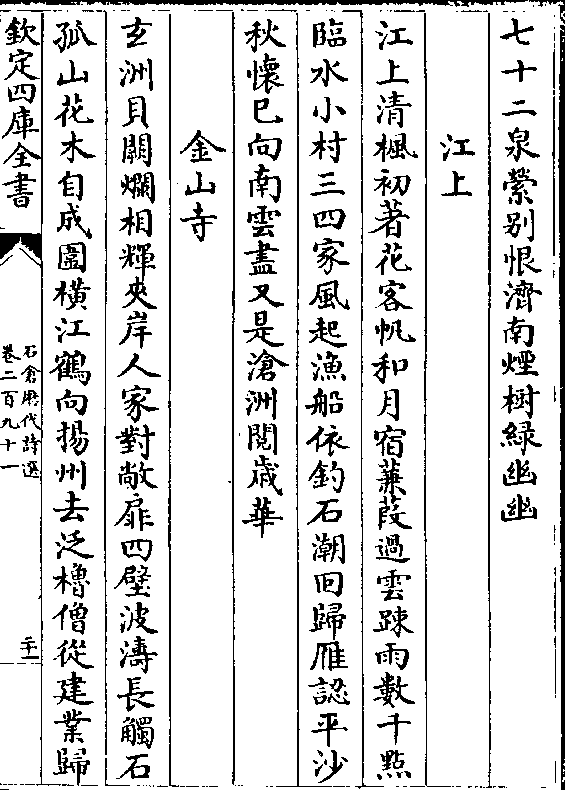 七十二泉縈別恨濟南煙樹綠幽幽
江上
江上清楓初著花客帆和月宿蒹葭過雲踈雨數千㸃
臨水小村三四家風起漁船依釣石潮回歸雁認平沙
秋懷已向南雲盡又是滄洲閱歲華
金山寺
玄洲貝闕爛相輝夾岸人家對敞扉四壁波濤長觸石
孤山花木自成圖橫江鶴向揚州去泛櫓僧從建業歸
欽定四庫全書
石倉歷代詩選
卷二百九十一
二十一